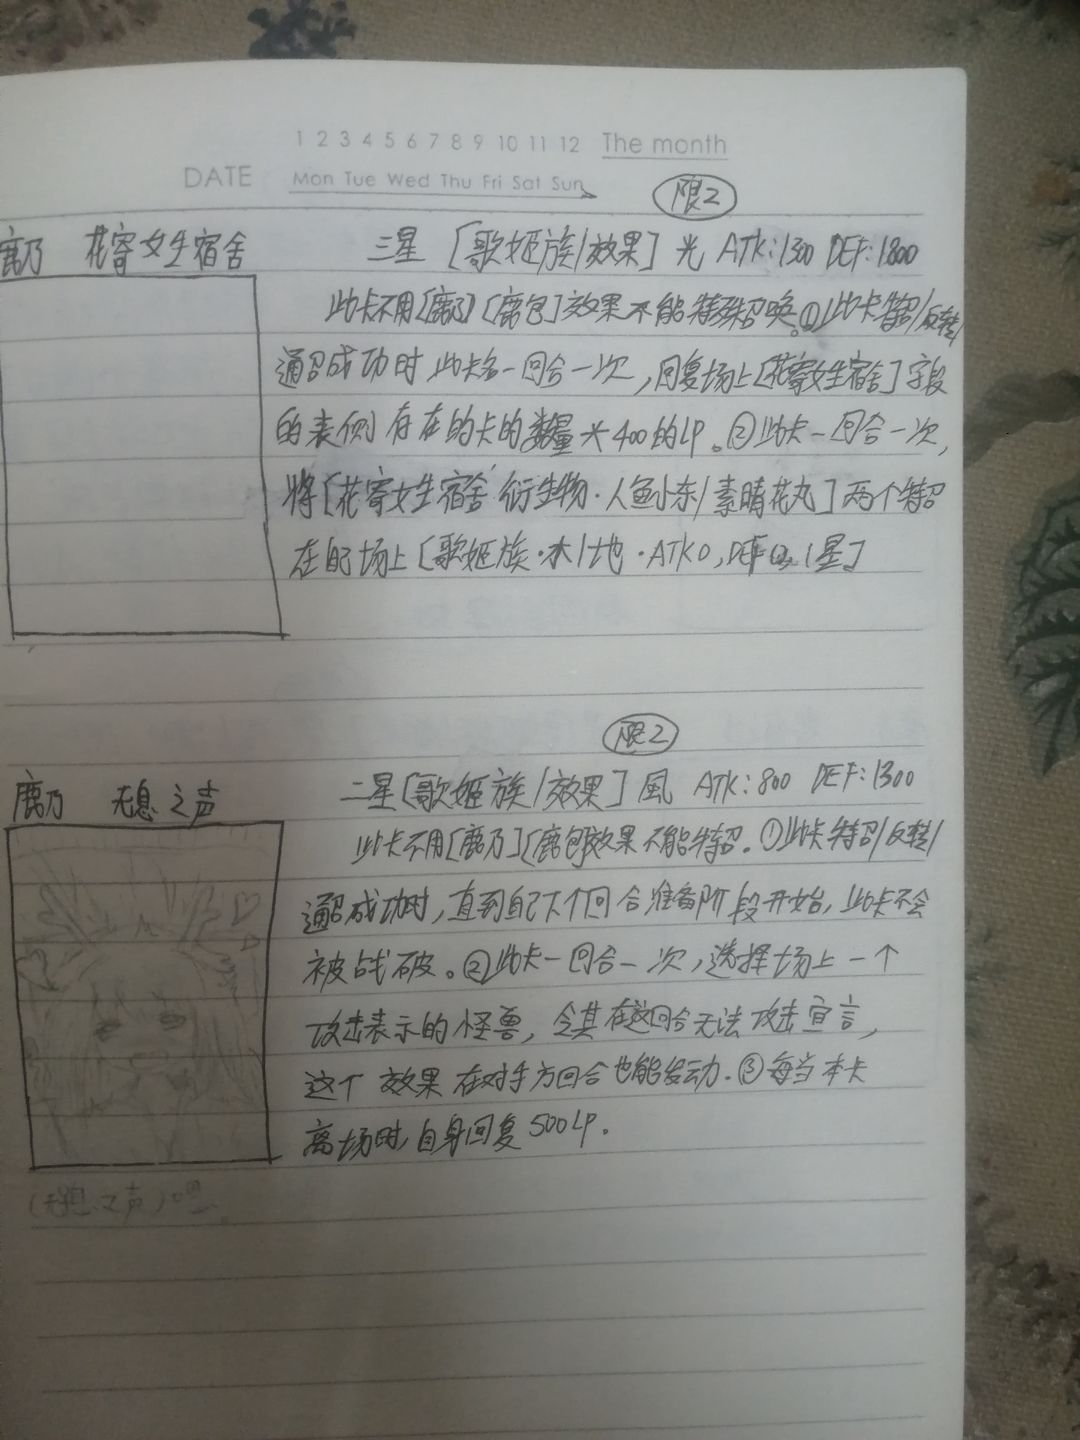 1 2 3 4 5 6 7 8 9 10 11 12 The month
DATE Mon Tue Wed Thu Fri Sat Sun
限2
鹿乃 花寄女生宿舍 三星 [歌姬族/效果] 光 ATK:1300 DEF:1800
此卡不用[鹿乃][鹿包]效果不能特殊召唤。①此卡特召/反转/
通召成功时 此卡名一回合一次,回复场上[花寄女生宿舍]字段
的表侧存在的卡的数量*400的LP。②此卡一回合一次,
将[花寄女生宿舍 衍生物·人鱼小东/素晴花丸]两个特召
在自己场上[歌姬族·水/地·ATK0,DEF0,1星]
限2
鹿乃 无息之声 二星[歌姬族/效果] 風 ATK:800 DEF:1300
此卡不用[鹿乃][鹿包]效果不能特召.①此卡特召/反转/
通召成功时,直到自己下个回合准备阶段开始,此卡不会
被战破。②此卡一回合一次,选择场上一个
攻击表示的怪兽,令其在这回合无法攻击宣言,
这个效果在对手方回合也能发动.③每当本卡
离场时,自身回复500LP.
(无息之声)